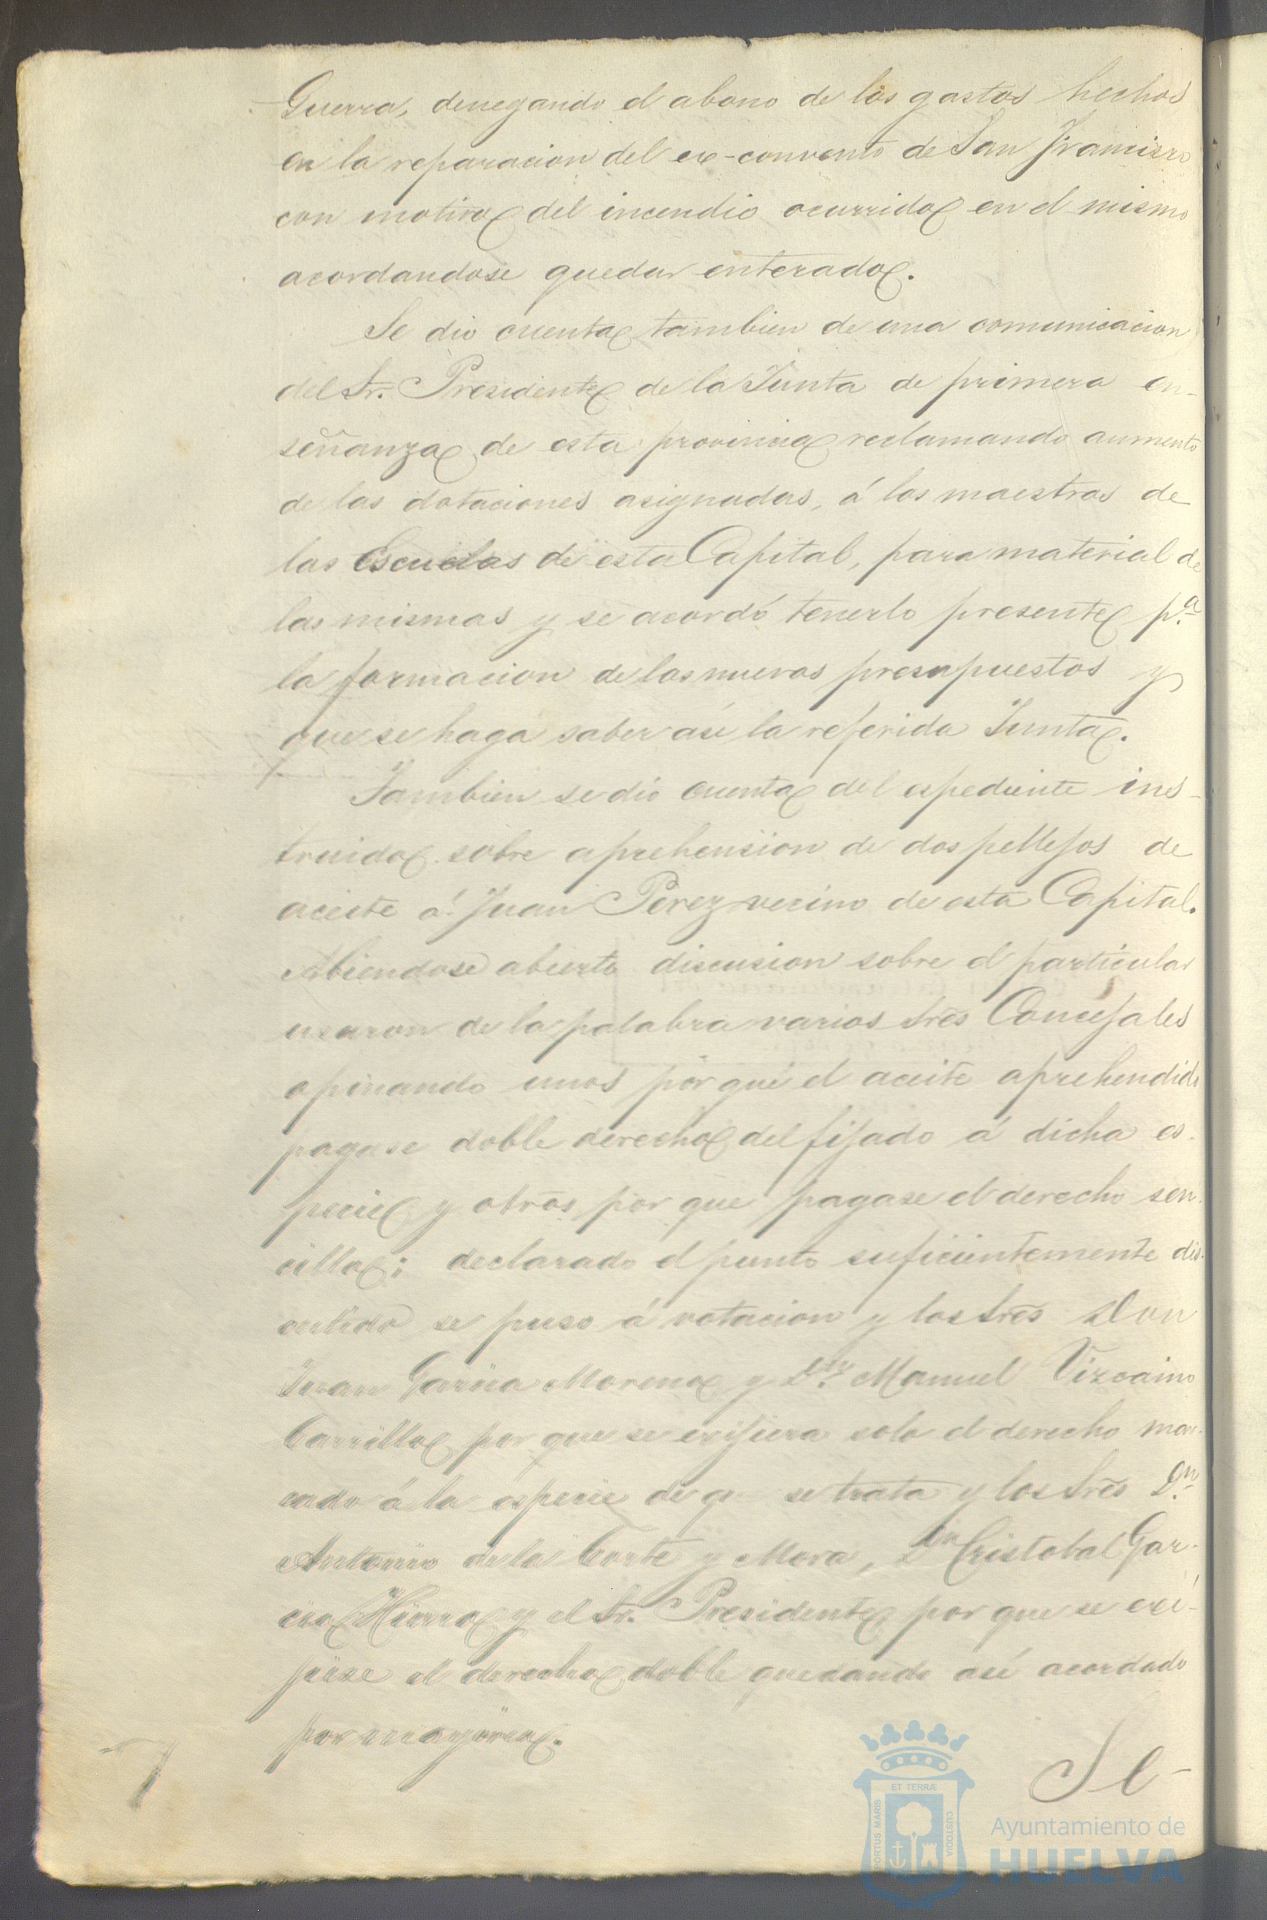 Guerra, denegando el abono de los gastos hechos
en la reparacion del ex-convento de San Francisco
con motivo del incendio ocurrido en el mismo
acordandose quedar enterado.
Se dio cuenta tambien de una comunicacion
del Sr. Presidente de la Junta de primera en-
señanza de esta provincia reclamando aumento
de las dotaciones asignadas, á los maestros de
las Escuelas de esta Capital, para material de
las mismas y se acordó tenerlo presente p.ª
la formacion de los nuevos presupuestos y
que se haga saber asi la referida Junta.
Tambien se dió cuenta del espediente ins-
truido sobre aprehension de dos pellejos de
aceite á Juan Perez vecino de esta Capital.
Abiendose abierto discusion sobre el particular
usaron de la palabra varios Sres Concejales
opinando unos por que el aceite aprehendido
pagase doble derecho del fijado á dicha es-
pecie y otros por que pagase el derecho sen-
cillo; declarado el punto suficientemente dis-
cutido se puso á votacion y los Sres Don
Juan Garcia Moreno y D.n Manuel Vizcaino
Carrillo por que se exijiera solo el derecho mar-
cado á la especie de q. se trata y los Sres D.n
Antonio de la Corte y Mora, D.n Cristobal Gar-
cia Hierro y el Sr. Presidente por que se exi-
jiese el derecho doble quedando asi acordado
por mayoria.
Se-
ET TERRÆ
PORTUS MARIS
CUSTODIA
Ayuntamiento de
HUELVA